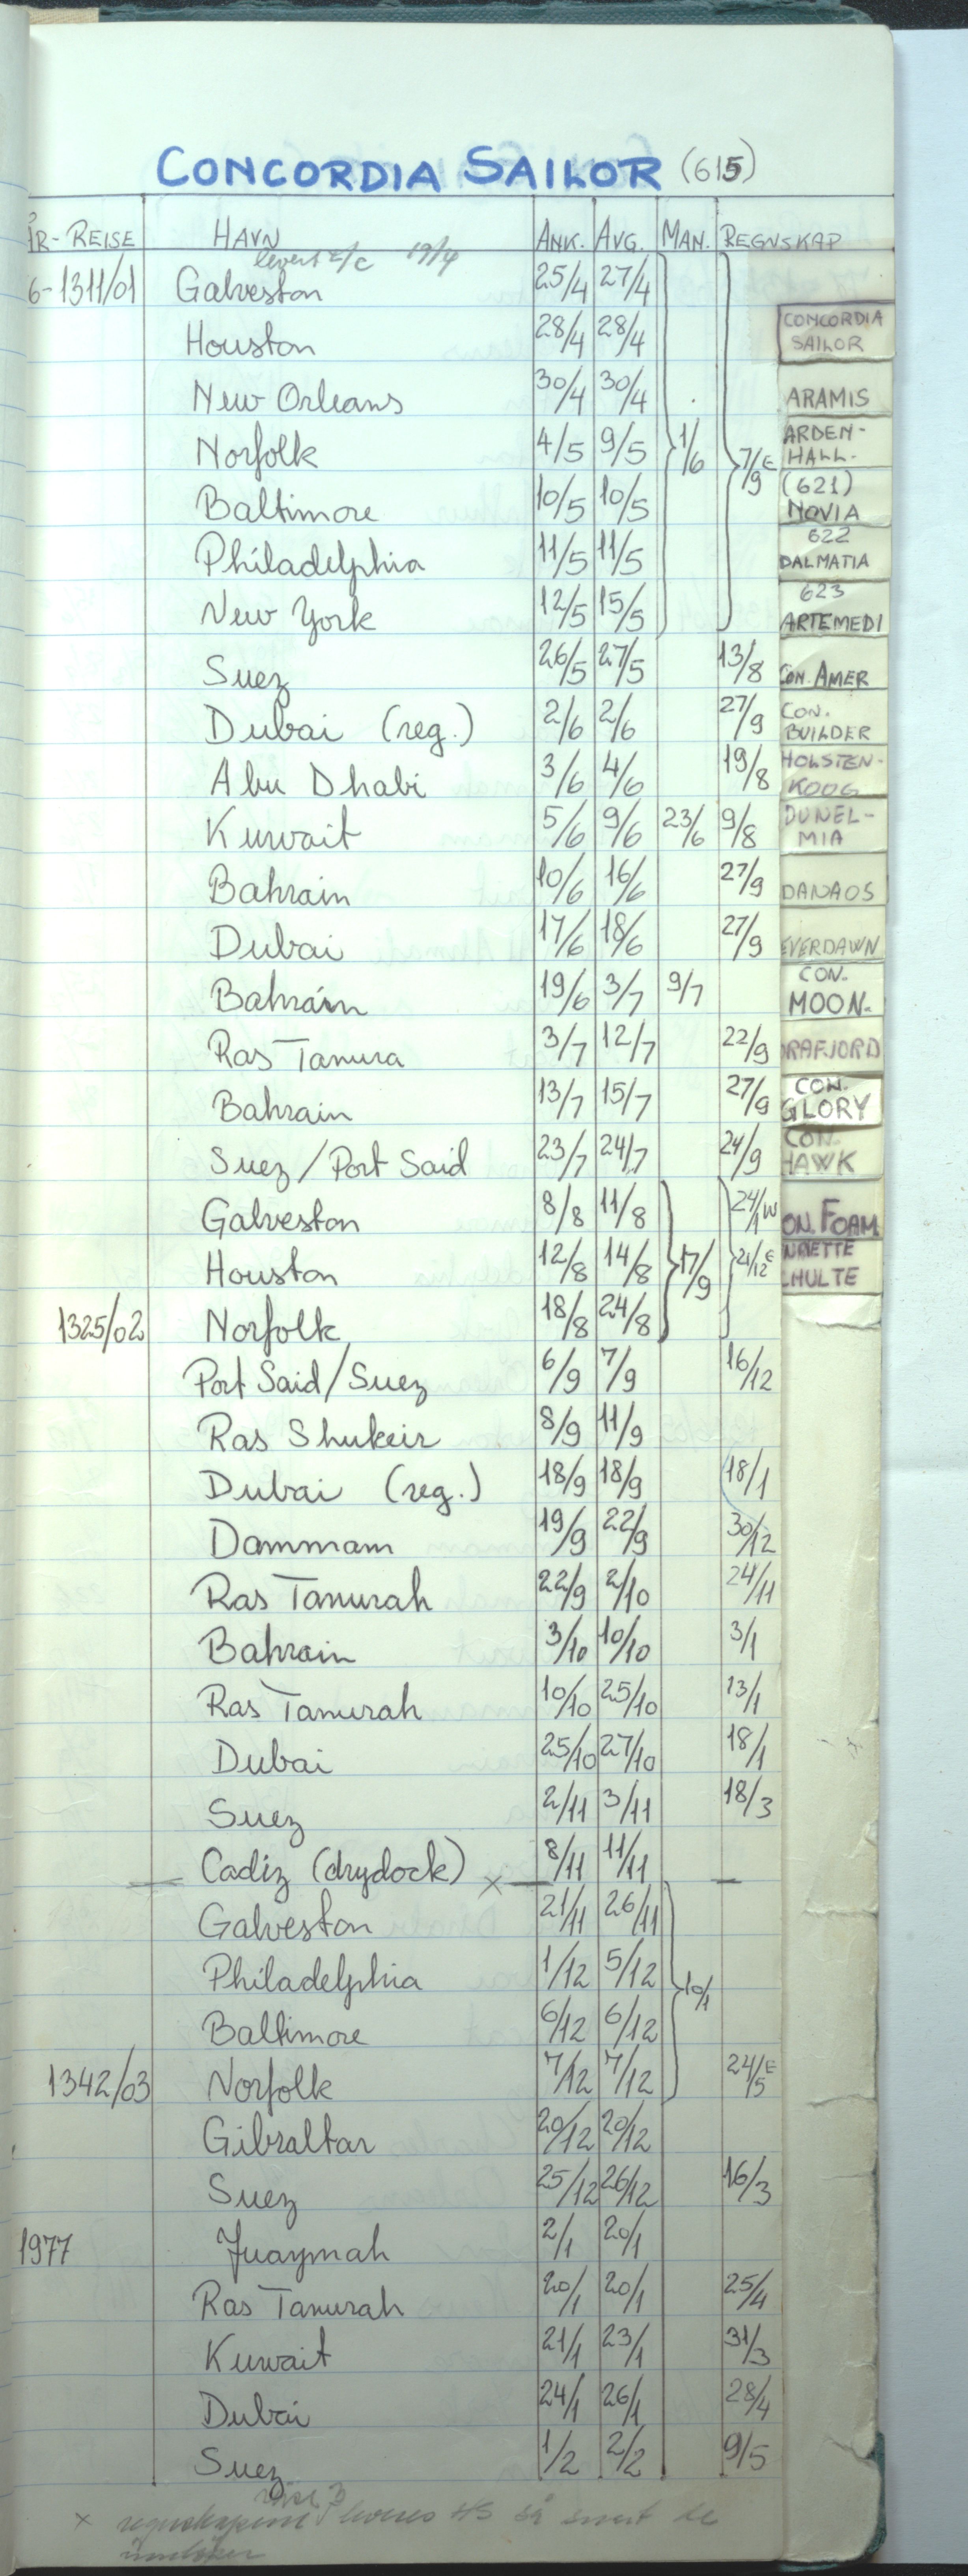 CONCORDIA SAILOR (615)
ÅR - REISE HAVN ANK. AVG. MAN. REGNSKAP
levert t/c 19/4
6-1311/01 Galveston 25/4 27/4
Houston 28/4 28/4
New Orleans 30/4 30/4
Norfolk 4/5 9/5 1/6 7/9 E
Baltimore 10/5 10/5
Philadelphia 11/5 11/5
New York 12/5 15/5
Suez 26/5 27/5 13/8
Dubai (reg.) 2/6 2/6 27/9
Abu Dhabi 3/6 4/6 19/8
Kuwait 5/6 9/6 23/6 9/8
Bahrain 10/6 16/6 27/9
Dubai 17/6 18/6 27/9
Bahrain 19/6 3/7 9/7
Ras Tanura 3/7 12/7 22/9
Bahrain 13/7 15/7 27/9
Suez/Port Said 23/7 24/7 24/9
Galveston 8/8 11/8 24/1 W
Houston 12/8 14/8 17/9 21/12 E
1325/02 Norfolk 18/8 24/8
Port Said/Suez 6/9 7/9 16/12
Ras Shukeir 8/9 11/9
Dubai (reg.) 18/9 18/9 18/1
Dammam 19/9 22/9 30/12
Ras Tanurah 22/9 2/10 24/11
Bahrain 3/10 10/10 3/1
Ras Tanurah 10/10 25/10 13/1
Dubai 25/10 27/10 18/1
Suez 2/11 3/11 18/3
Cadiz (drydock) x 8/11 11/11
Galveston 21/11 26/11
Philadelphia 1/12 5/12 10/1
Baltimore 6/12 6/12
1342/03 Norfolk 7/12 7/12 24/5 E
Gibraltar 20/12 20/12
Suez 25/12 26/12 16/3
1977 Juaymah 2/1 20/1
Ras Tanurah 20/1 20/1 25/4
Kuwait 21/1 23/1 31/3
Dubai 24/1 26/1 28/4
Suez 1/2 2/2 9/5
x regnskapene leveres så snart de
CONCORDIA
SAILOR
ARAMIS
ARDEN-
HALL.
(621)
NOVIA
622
DALMATIA
623
ARTEMEDI
CON. AMER
CON.
BUILDER
HOLSTEN-
KOOG
DUNEL-
MIA
DANAOS
EVERDAWN
CON.
MOON.
DRAFJORD
CON.
GLORY
CON.
HAWK
ON. FOAM
NNETTE
CHULTE